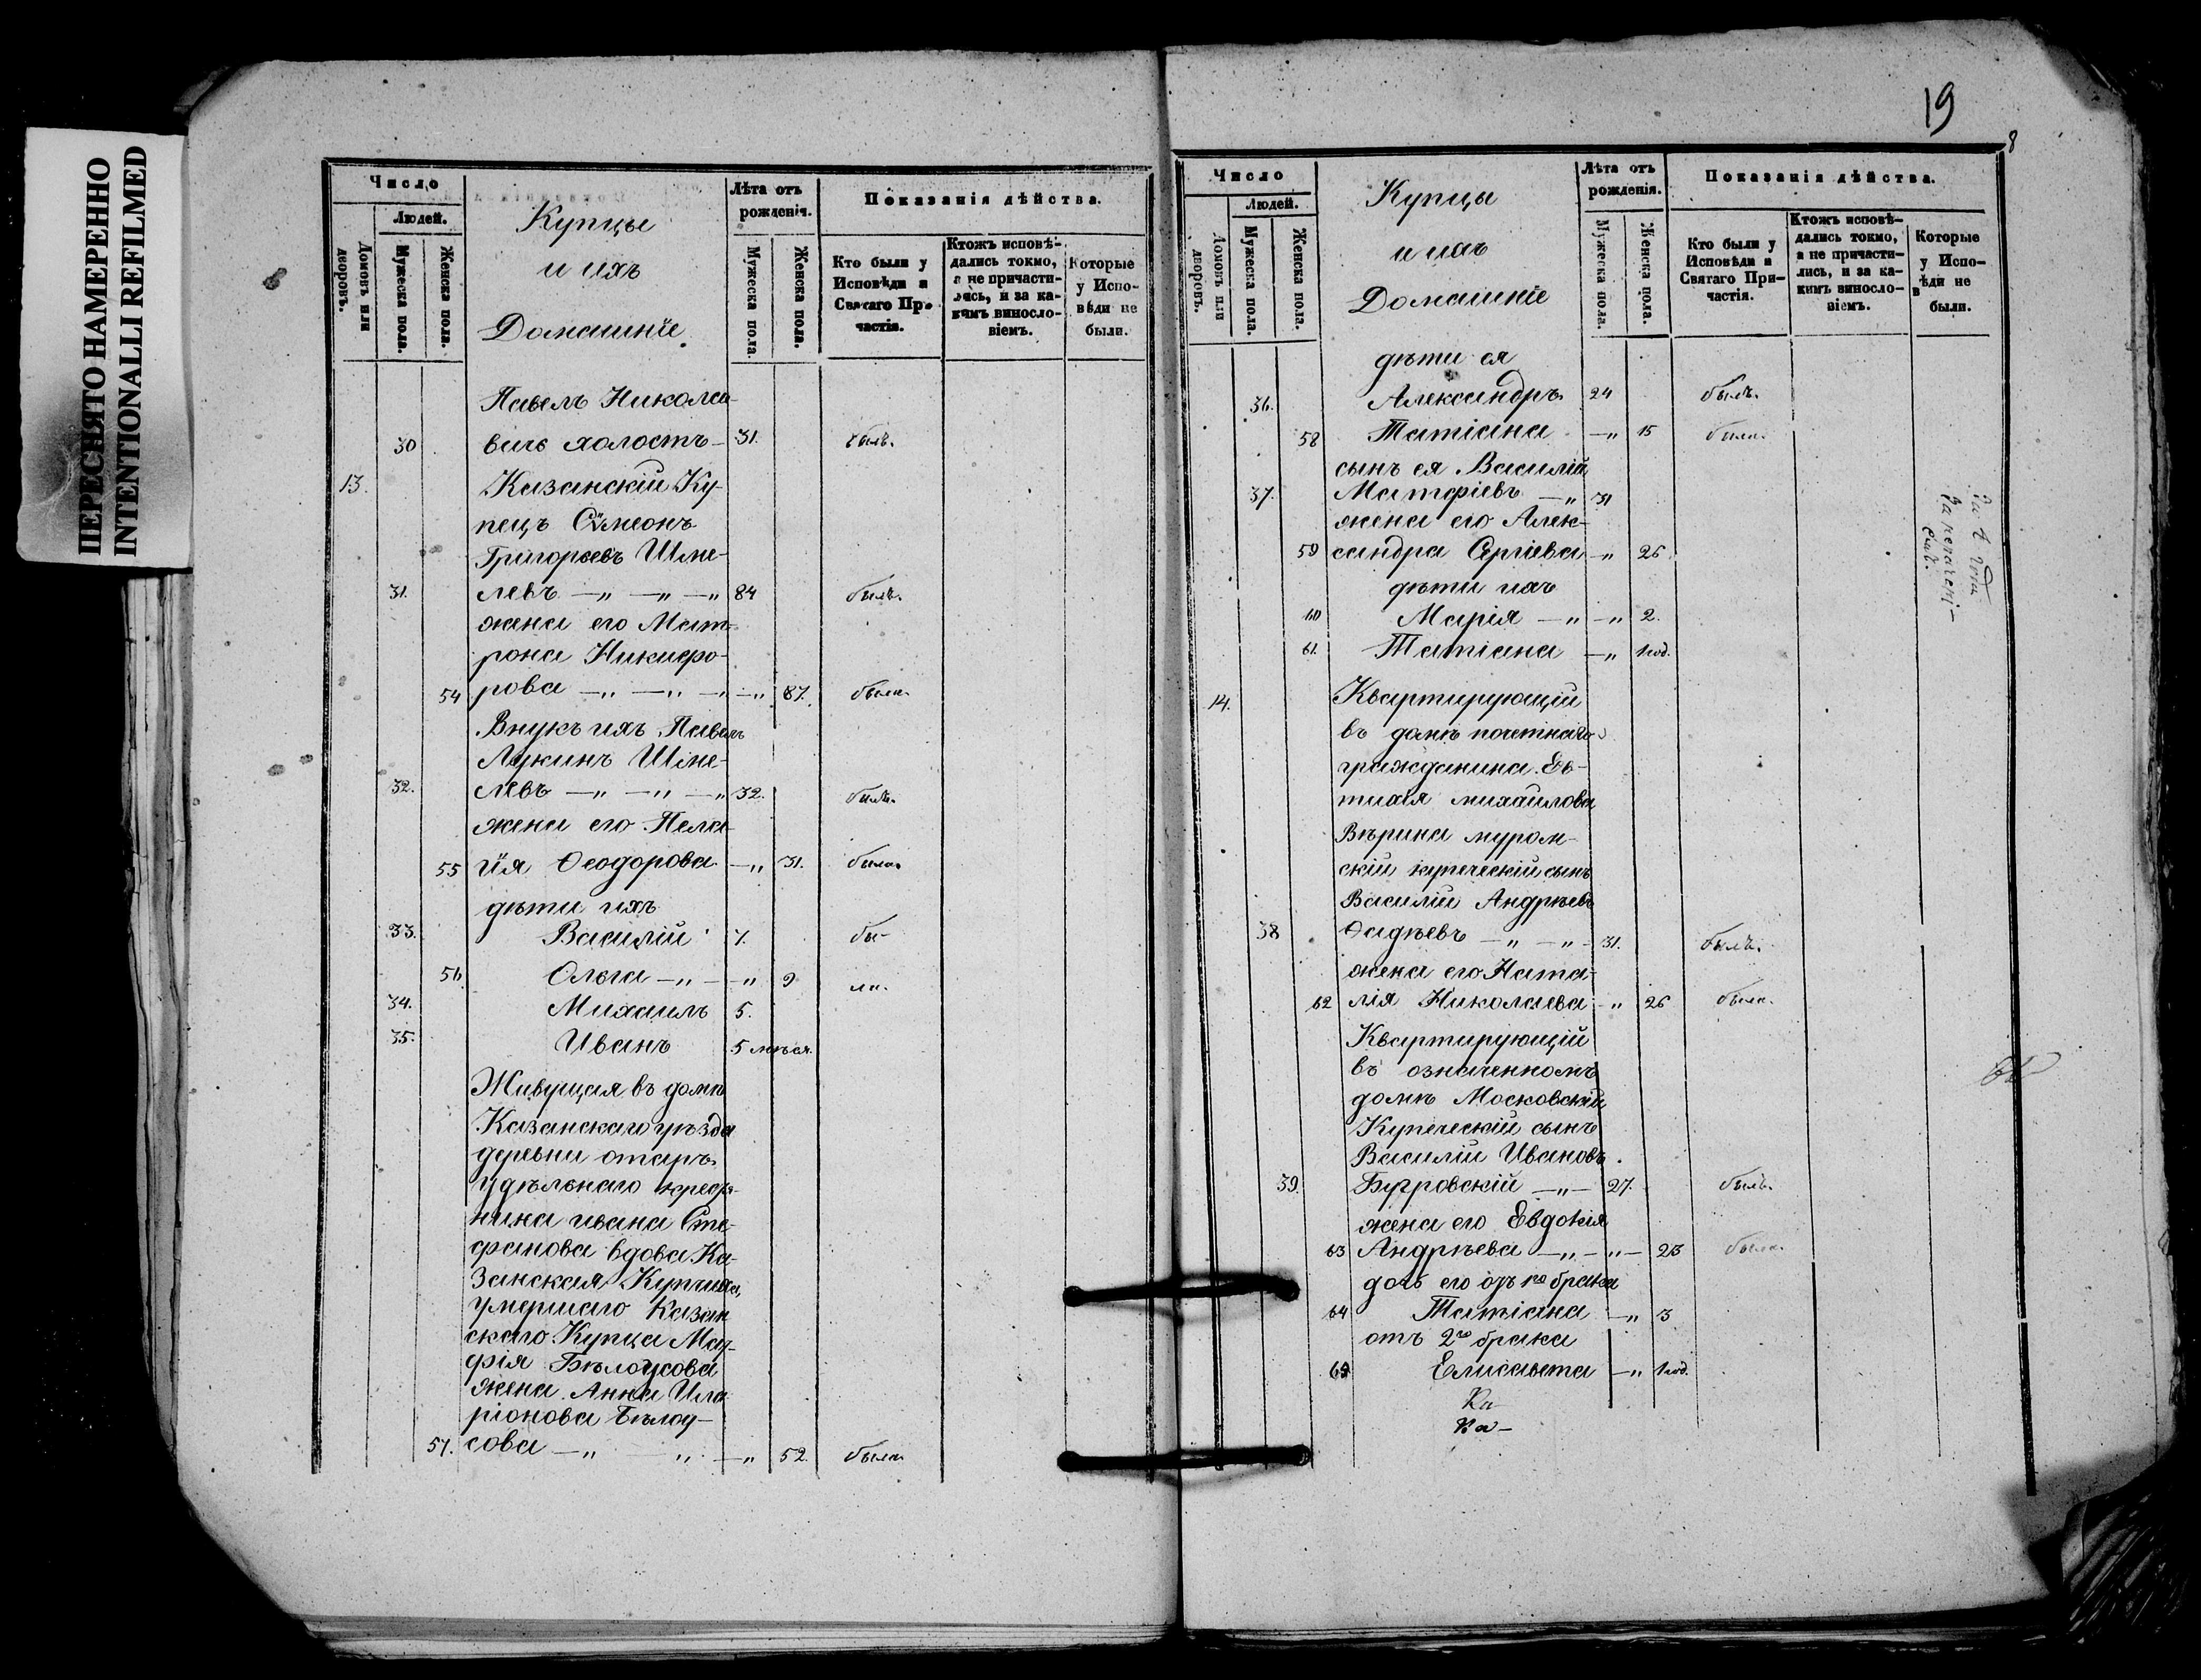 ПЕРЕСНЯТО НАМЕРЕННО
INTENTIONALLI REFILMED
Число
Людей.
Домовъ или дворовъ.
Мужеска пола.
Женска пола.
Купцы
и ихъ
Домашніе.
Лѣта отъ рожденія.
Мужеска пола.
Женска пола.
Показанія дѣйства.
Кто были у Исповѣди и Святаго Причастія.
Ктожъ исповѣ-
дались токмо,
а не причасти-
лись, и за ка-
кимъ винословіемъ.
Которые
у Испо-
вѣди не
были.
Павелъ Никола-
30 вичь холостъ 31. былъ.
13. Казанскій Ку-
пецъ Сѵмеонъ
Григорьевъ Шме-
31. левъ —„ —„ —„ 84 былъ.
жена его Мат-
рона Никифо-
54 рова —„ —„ —„ —„ 87. была.
Внукъ ихъ Павелъ
Лукинъ Шме-
32. левъ —„ —„ —„ 32. былъ.
жена его Пела-
55 гія Ѳеодорова —„ 31. была.
дѣти ихъ
33. Василій 7. бы-
56 Ольга —„ —„ 9 ли.
34. Михаилъ 5.
35. Иванъ 5 мѣся.
Живущая въ домѣ
Казанскаго уѣзда
деревни отаръ
удѣльнаго кресть-
нина ивана Сте-
фанова вдова Ка-
занская Купчиха,
умершаго Казан
скаго Купца Мат-
фія Бѣлоусова
жена Анна Ила
ріонова Бѣлоу-
57. сова —„ „ —„ 52. была.
19
8
Число
Людей.
Домовъ или дворовъ.
Мужеска пола.
Женска пола.
Купцы
и ихъ
Домашніе
Лѣта отъ рожденія.
Мужеска пола.
Женска пола.
Показанія дѣйства.
Кто были у
Исповѣди и
Святаго При-
частія.
Ктожъ исповѣ-
дались токмо,
а не причасти-
лись, и за ка-
кимъ винословіемъ.
Которые
у Испо-
вѣди не
были.
дѣти ея
36. Александръ 24 былъ.
58 Татіана —„ 15 была.
сынъ ея Василій
37. Матфіевъ —„ 31
жена его Алек-
59 сандра Сергіева —„ 26
дѣти ихъ
60 Марія —„ —„ 2.
61. Татіана —„ 1 год.
14. Квартирующій
въ домѣ почетнаго
гражданина Ев-
тихія михаилова
Вѣрина муром-
скій купеческій сынъ
Василій Андрѣевъ
38 Ѳадѣевъ —„ —„ — 31. былъ.
жена его Ната-
62 лія Николаева —„ 26 была.
Квартирующій
въ означенномъ
домѣ Московскій
Купеческій сынъ
Василій Ивановъ.
39. Бугровскій —„— 27. былъ.
жена его Евдокія
63 Андрѣева —„—„— 23 была.
дочь его отъ 1го брака
64 Татіана —„ 3
отъ 2го брака
65 Елисавета —„ 1 год.
Ка
Ка-